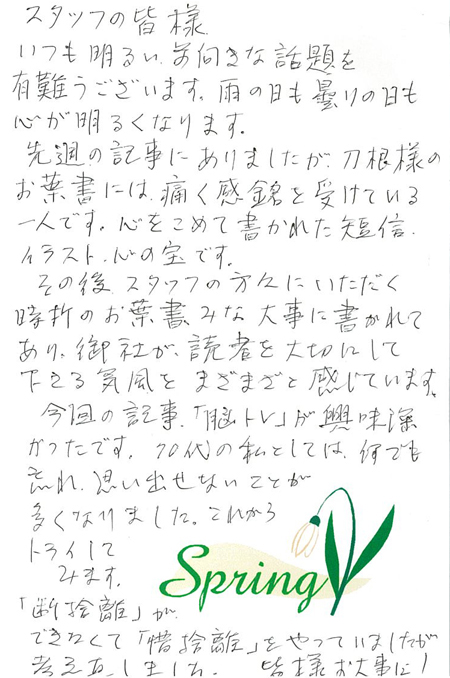 スタッフの皆様
いつも明るい、前向きな話題を
有難うございます。雨の日も曇りの日も
心が明るくなります。
先週の記事にありましたが、刀根様の
お葉書には、痛く感銘を受けている
一人です。心をこめて書かれた短信、
イラスト、心の宝です。
その後、スタッフの方々にいただく
時折のお葉書、みな大事に書かれて
あり、御社が、読者を大切にして
下さる気風をまざまざと感じています。
今回の記事、「脳トレ」が興味深
かったです。70代の私としては、何でも
忘れ、思い出せないことが
多くなりました。これから
トライして
みます。
Spring
「断捨離」が、
できなくて「惜捨離」をやっていましたが
考え直しました。 皆様お大事に!